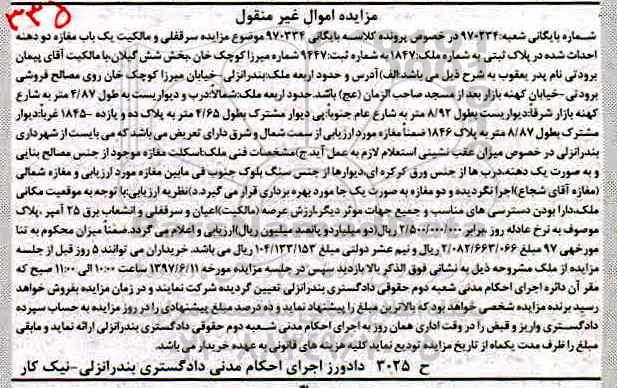 ۳۳۵
مزایده اموال غیر منقول
شماره بایگانی شعبه:۹۷۰۳۳۴ در خصوص پرونده کلاسه بایگانی ۹۷۰۳۳۴ موضوع مزایده سرقفلی و مالکیت یک باب مغازه دو دهنه
احداث شده در پلاک ثبتی به شماره ملک:۱۸۴۷ به شماره ثبت:۹۴۴۷ شماره میرزا کوچک خان ،بخش شش گیلان،با مالکیت آقای پیمان
برودتی نام پدر یعقوب به شرح ذیل می باشد:الف) آدرس و حدود اربعه ملک:بندرانزلی –خیابان میرزا کوچک خان روی مصالح فروشی
برودتی–خیابان کهنه بازار بعد از مسجد صاحب الزمان (عج) باشد.حدود اربعه ملک:شمالاً:درب و دیواریست به طول ۴/۸۷ متر به شارع
کهنه بازار شرقاً:دیواریست بطول ۸/۹۲ متر به شارع عام جنوباً:پی دیوار مشترک بطول ۴/۶۵ متر به پلاک ده و یازده –۱۸۴۵ غرباً:دیوار
مشترک بطول ۸/۸۷ متر به پلاک ۱۸۴۶ ضمناً مغازه مورد ارزیابی از سمت شمال و شرق دارای تعریض می باشد که می بایست از شهرداری
بندرانزلی در خصوص میزان عقب نشینی استعلام لازم به عمل آید.ج)مشخصات فنی ملک:اسکلت مغازه موجود از جنس مصالح بنایی
و به صورت یک دهنه،درب ها از جنس ورق کرکره ای،دیوارها از جنس سنگ بلوک جنوب فی مابین مغازه مورد ارزیابی و مغازه شمالی
(مغازه آقای شجاع)اجرا نگردیده و دو مغازه به صورت یک جا مورد بهره برداری قرار می گیرد.د)نظریه ارزیابی:با توجه به موقعیت مکانی
ملک،دارا بودن دسترسی های مناسب و جمیع جهات موثر دیگر،ارزش عرصه (مالکیت)اعیان و سرقفلی و انشعاب برق ۲۵ آمپر ،پلاک
موصوف به نرخ عادله روز ،برابر ۲/۵۰۰/۰۰۰/۰۰۰ ریال(دو میلیارد و پانصد میلیون ریال)ارزیابی و اعلام می گردد.ضمناً میزان محکوم به تنا
مورخهی ۹۷ مبلغ ۲/۰۸۲/۶۶۳/۰۶۶ ریال و نیم عشر دولتی مبلغ ۱۰۴/۱۳۳/۱۵۳ ریال می باشد. خریداران می توانند ۵ روز قبل از جلسه
مزایده از ملک مشروحه ذیل به نشانی فوق الذکر بالا بازدید سپس در جلسه مزایده مورخه ۱۳۹۷/۶/۱۱ ساعت ۱۰:۰۰ الی ۱۱:۰۰ صبح که
مقر آن دائره اجرای احکام مدنی شعبه دوم حقوقی دادگستری بندرانزلی تعیین گردیده شرکت نمایند و در زمان مزایده بفروش خواهد
رسید برنده مزایده شخصی خواهد بود که بالاترین مبلغ را پیشنهاد نماید و ده درصد مبلغ پیشنهادی را در روز مزایده به حساب سپرده
دادگستری واریز و قبض را در وقت اداری همان روز به اجرای احکام مدنی شعبه دوم حقوقی دادگستری بندرانزلی ارائه نماید و مابقی
مبلغ را ظرف مدت یکماه از تاریخ مزایده تودیع نماید کلیه هزینه های قانونی به عهده خریدار می باشد.
ح ۳۰۲۵ دادورز اجرای احکام مدنی دادگستری بندرانزلی–نیک کار